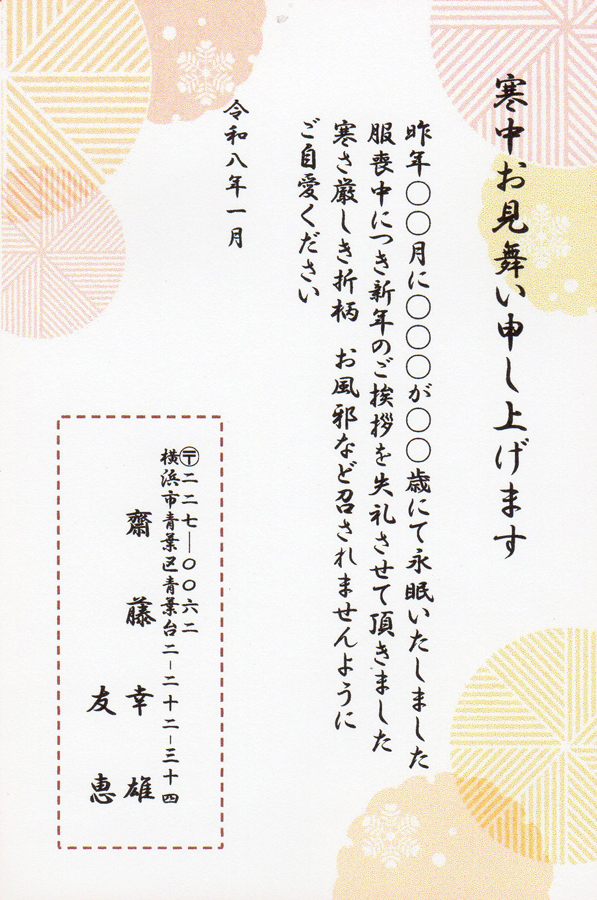 寒中お見舞い申し上げます
昨年〇〇月に〇〇〇が〇〇歳にて永眠いたしました
服喪中につき新年のご挨拶を失礼させて頂きました
寒さ厳しき折柄　お風邪など召されませんように
ご自愛ください
令和八年一月
〒二二七―〇〇六二
横浜市青葉区青葉台二－二十二－三十四
齋藤幸雄
友恵